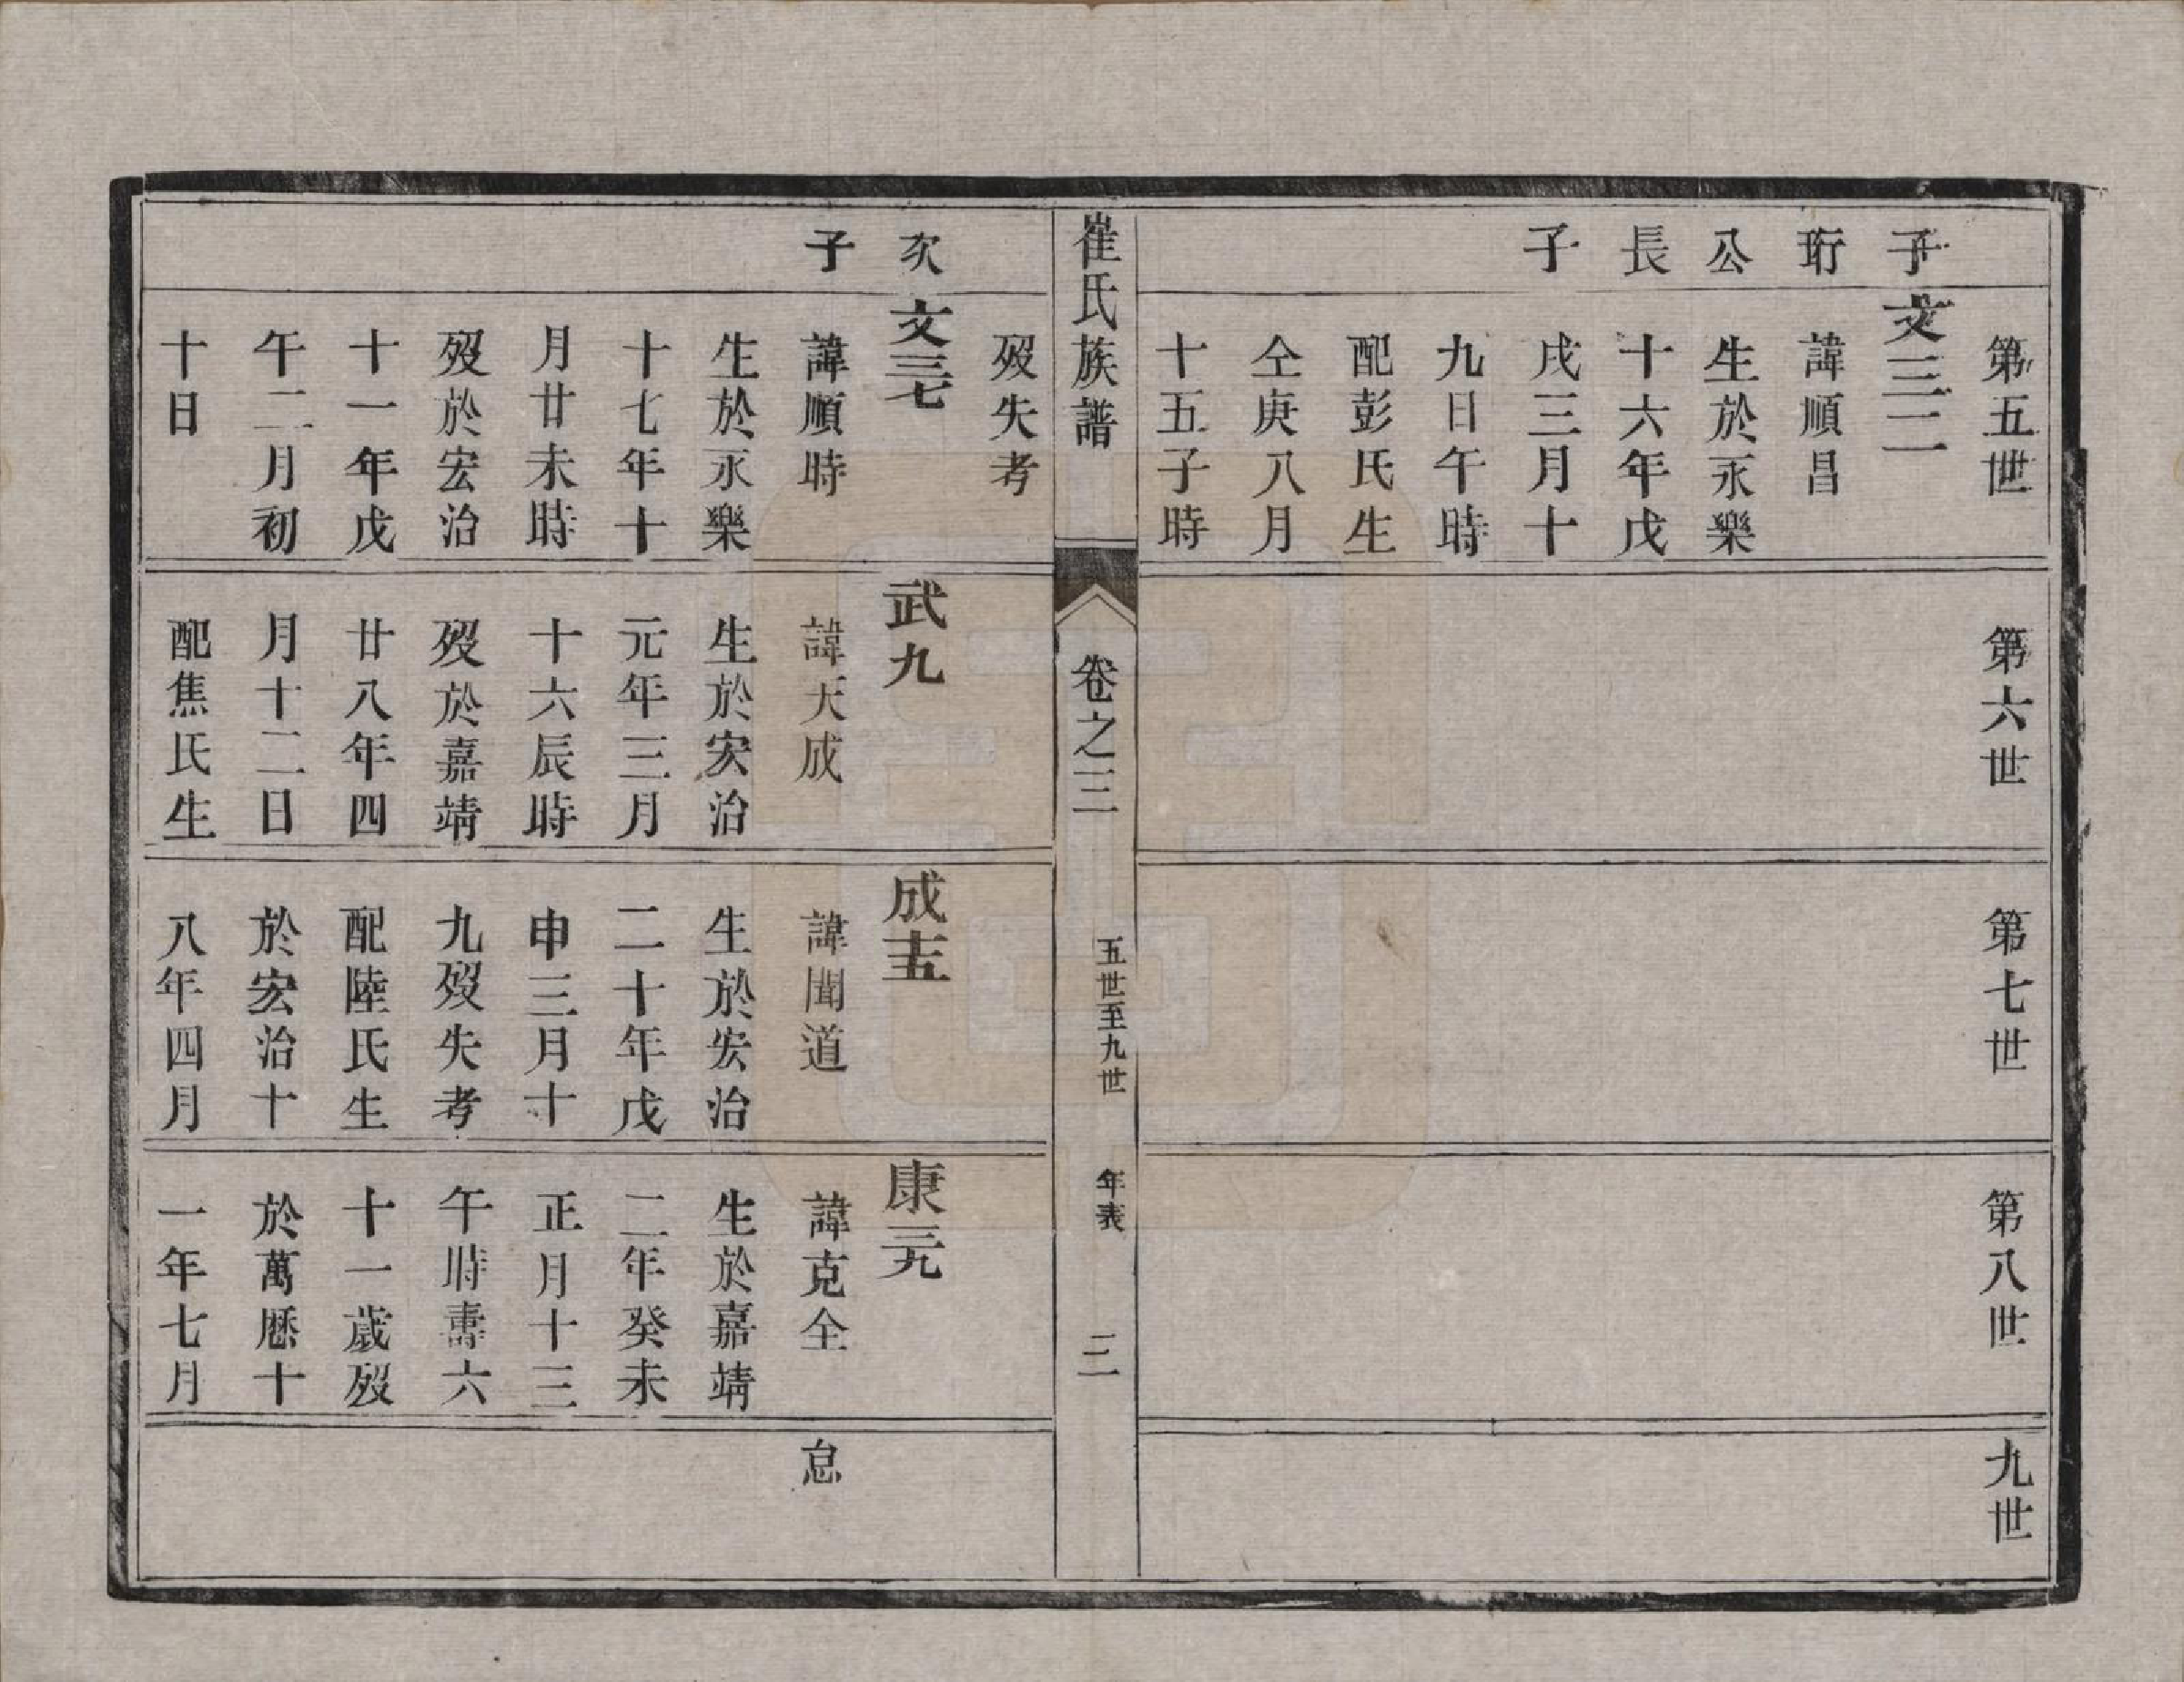 第五世
子 文三二
珩 諱順昌
公 生於永樂
長 十六年戊
子 戌三月十
九日午時
配彭氏生
仝庚八月
十五子時
第六世
第七世
第八世
九世
崔氏族譜
卷之三
五世至九世
年表
二
歿失考
次 文三七
子 諱順時
生於永樂
十七年十
月廿未時
歿於宏治
十一年戊
午二月初
十日
武九
諱天成
生於宏治
元年三月
十六辰時
歿於嘉靖
廿八年四
月十二日
配焦氏生
成十五
諱聞道
生於宏治
二十年戊
申三月十
九歿失考
配陸氏生
於宏治十
八年四月
康三九
諱克全
生於嘉靖
二年癸未
正月十三
午時壽六
十一歲歿
於萬曆十
一年七月
怠